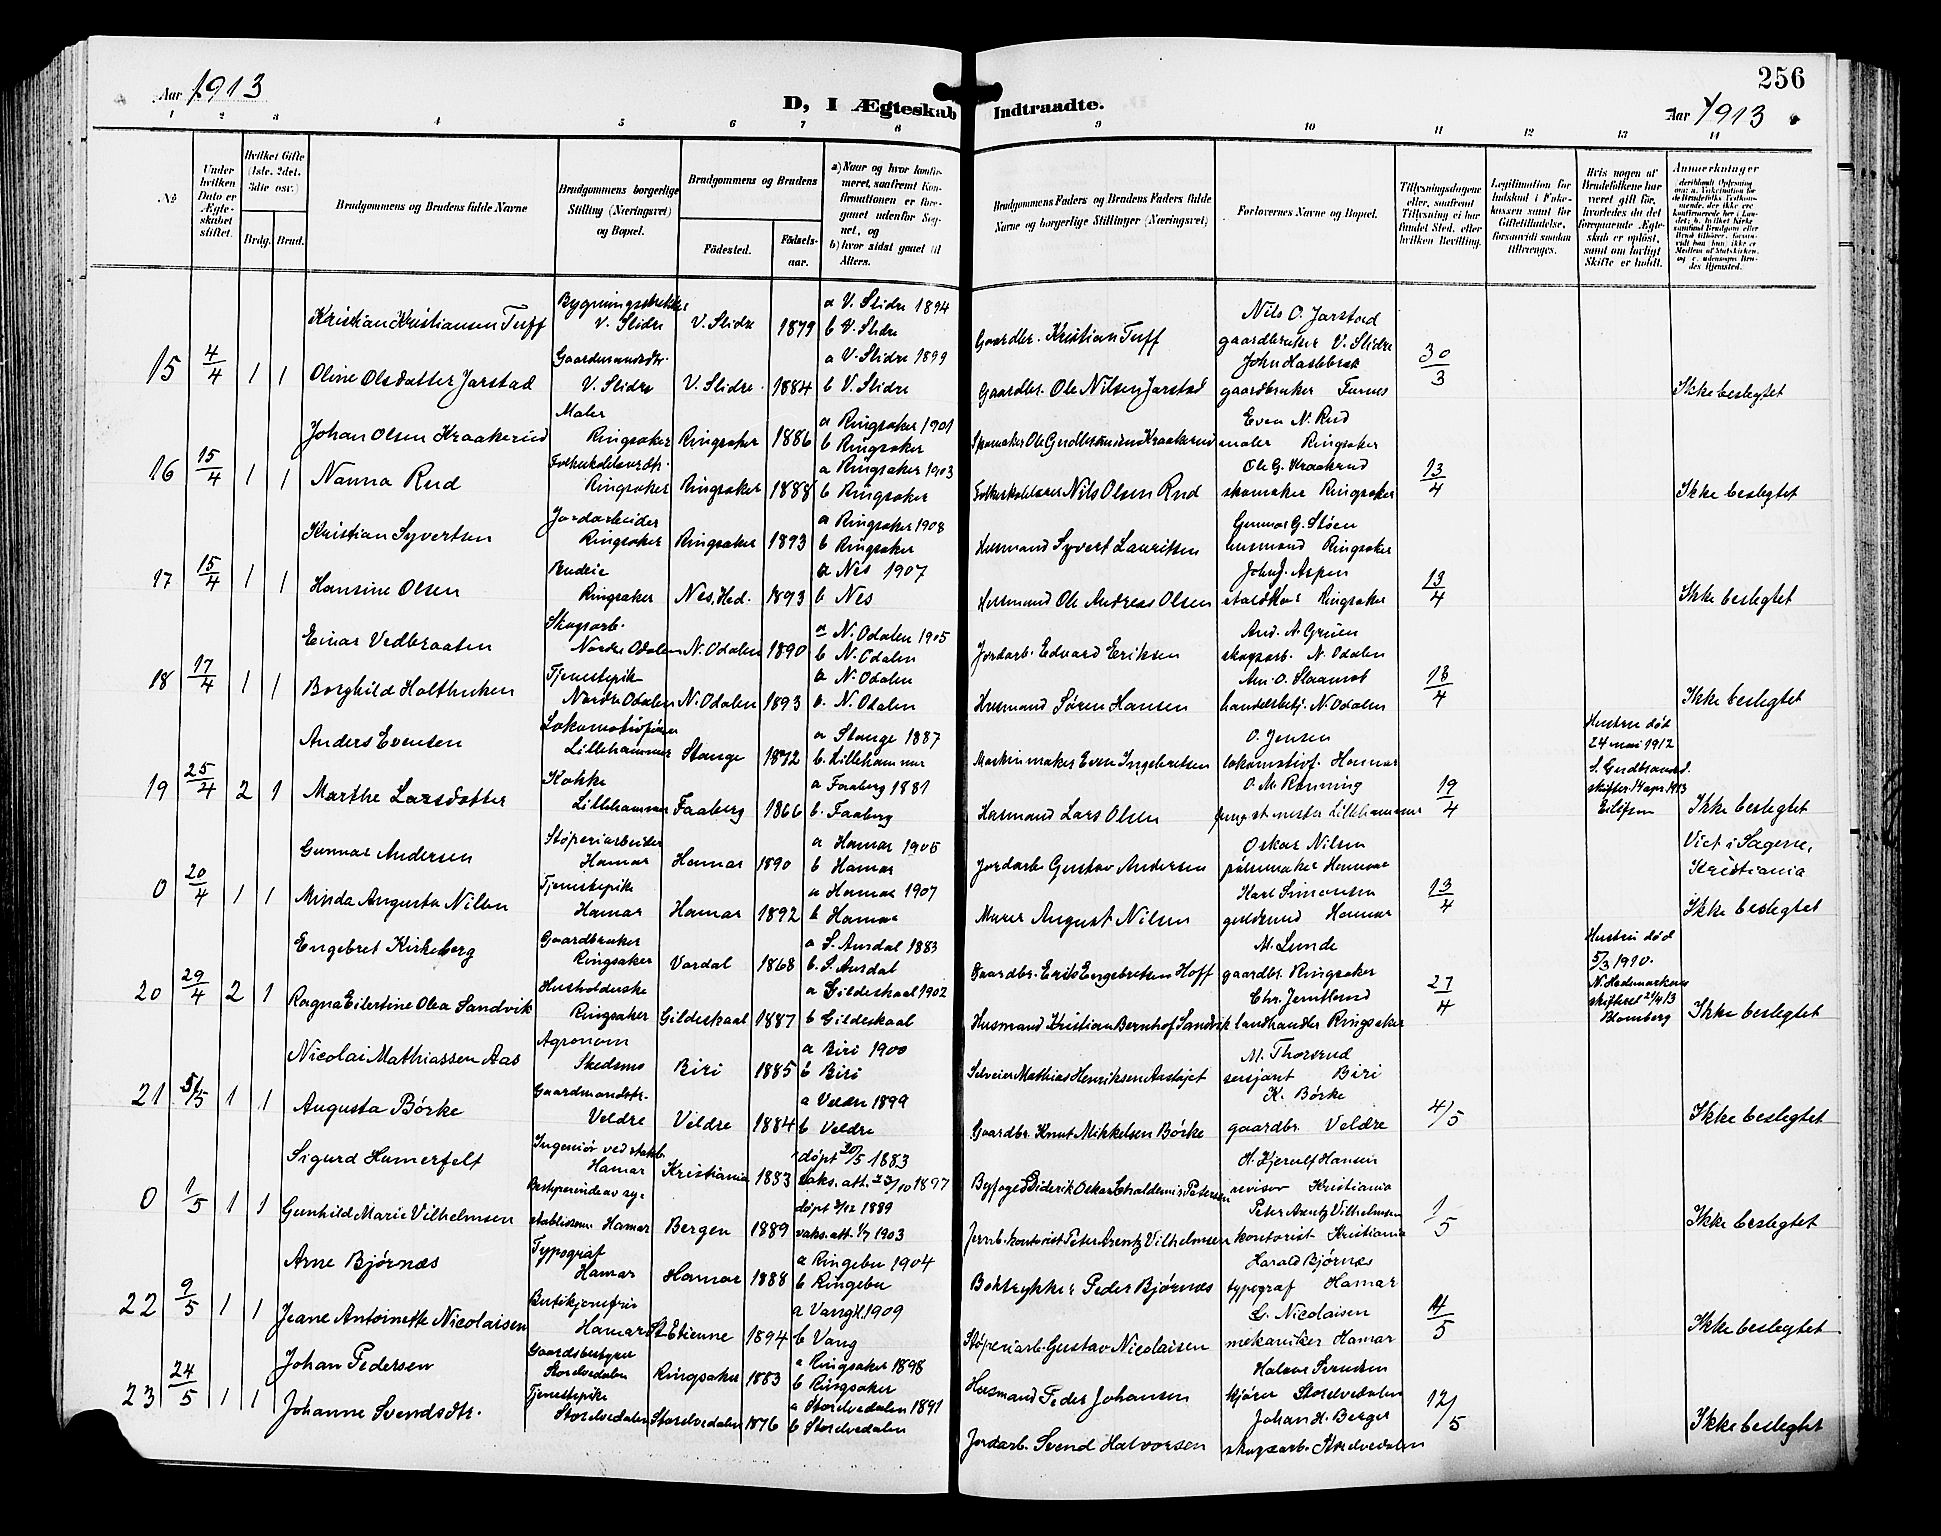 Aar 1913
D, I Ægteskab Indtraadte.
256
Aar 1913
1 2 3 4 5 6 7 8 9 10 11 12 13 14
No
Under hvilken Dato er Ægteskabet stiftet.
Hvilket Gifte (1ste. 2det. 3die osv.)
Brdg. Brud.
Brudgommens og Brudens fulde Navne
Brudgommens borgerlige Stilling (Næringsvei) og Bopæl.
Brudgommens og Brudens
Födested. Födselsaar.
a) Naar og hvor konfirmeret, saafremt Konfirmationen er foregaaet udenfor Sognet, og
b) hvor sidst gaaet til Alters.
Brudgommens Faders og Brudens Faders fulde Navne og borgerlige Stillinger (Næringsvei)
Forlovernes Navne og Bopæl.
Tillysningsdagene eller, saafremt Tillysning ei har fundet Sted, efter hvilken Bevilling.
Legitimation for Indskud i Enkekassen samt for Giftetilladelse, forsaavidt saadan tiltrænges.
Hvis nogen af Brudefolkene har været gift før, hvorledes da det foregaaende Ægteskab er opløst, samt om lovligt Skifte er holdt.
Anmærkninger
Kristian Kristiansen Tuff V. Slidre V. Slidre 1879 a V. Slidre 1894 b V. Slidre Gaardbr. Kristian Tuff Nils O. Jarstad gaardbruker V. Slidre
15 4/4 1 1 Oline Olsdatter Jarstad Gaardmandsdtr. V. Slidre V. Slidre 1884 a V. Slidre 1899 b V. Slidre Gaardbr. Ole Nilsen Jarstad gaardbruker Furnes 30/3 Ikke beslegtet
Johan Olsen Kraakerud Maler Ringsaker Ringsaker 1886 a Ringsaker 1901 b Ringsaker Even N. Rud maler Ringsaker
16 15/4 1 1 Nanna Rud Ringsaker Ringsaker 1888 a Ringsaker 1903 b Ringsaker Nils Olsen Rud Ole G. Kraakrud skomaker Ringsaker 13/4 Ikke beslegtet
Kristian Syvertsen Jordarbeider Ringsaker Ringsaker 1893 a Ringsaker 1908 b Ringsaker Husmand Syvert Lauritsen Gunnar G. Støen husmand Ringsaker
17 15/4 1 1 Hansine Olsen Budeie Ringsaker Nes, Hed. 1893 a Nes 1907 b Nes Husmand Ole Andreas Olsen John J. Aspen staldkar Ringsaker 13/4 Ikke beslegtet
Einar Vedbraaten Skogsarb. Nordre Odalen N. Odalen 1890 a N. Odalen 1905 b N. Odalen Jordarb. Edvard Eriksen And. A. Gruen skogsarb. N. Odalen
18 17/4 1 1 Borghild Holthuken Tjenestepik Nordre Odalen N. Odalen 1893 a N. Odalen b. N. Odalen Husmand Søren Hansen handelsbetj. N. Odalen 13/4 Ikke beslegtet
Anders Evensen Lokomotivfører Lillehammer Stange 1872 a Stange 1887 b. Lillehammer Maskinmaker Even Ingebretsen O. Jensen lokomotivf. Hamar Hustru død 24 mai 1912
19 25/4 2 1 Marthe Larsdatter Kokke Lillehammer Faaberg 1866 a Faaberg 1881 b. Faaberg Husmand Lars Olsen O. M. Rønning Lillehammer 19/4 S. Gudbrandsd. skifter. 14 apr. 1913 Eilifsen Ikke beslegtet
Gunnar Andersen Støperiarbeider Hamar Hamar 1890 a Hamar 1905 b Hamar Jordarb. Gustav Andersen Oskar Nilsen pølsemaker Hamar Viet i Sagene, Kristiania
0 20/4 1 1 Minda Augusta Nilsen Tjenestepike Hamar Hamar 1892 a Hamar 1907 b Hamar Murer August Nilsen Karl Simonsen guldsmed Hamar 13/4 Ikke beslegtet
Engebret Kirkeberg Gaardbruker Ringsaker Vardal 1868 a S. Aurdal 1883 b. S. Aurdal Gaardbr. Erik Engebretsen Hoff M. Lunde gaardbr. Ringsaker Hustru død 5/3 1910.
20 29/4 2 1 Ragna Eilertine Olea Sandvik Husholderske Ringsaker Gildeskaal 1887 a Gildeskaal 1902 b Gildeskaal Husmand Kristian Bernhof Sandvik Chr. Jemtlund landhandler Ringsaker 27/4 N. Hedemarkens skifteret 21/4 13 Blomberg Ikke beslegtet
Nicolai Mathiassen Aas Agronom Skedsmo Biri 1885 a Biri 1900 b Biri Selveier Mathias Henriksen M. Thorsrud sersjant Biri
21 5/5 1 1 Augusta Børke Gaardmandsdtr. Veldre Veldre 1884 a Veldre 1899 b Veldre Gaardbr. Knut Mikkelsen Børke K. Børke gaardbr. Veldre 4/5 Ikke beslegtet
Sigurd Hamerfelt Hamar Kristiania 1883 døpt 20/5 1883 vaks. att. 23/10 1897 H. Kjerulf Hansen revisor Kristiania
0 1/5 1 1 Gunhild Marie Vilhelmsen Hamar Bergen 1889 døpt 3/12 1889 vaks. att. 1/7 1903 Jernb. kontorist Peter Arentz Vilhelmsen Peter Arentz Vilhelmsen kontorist Kristiania 1/5 Ikke beslegtet
Arne Bjørnæs Typograf Hamar Hamar 1888 a Ringebu 1904 b Ringebu Boktrykker Peder Bjørnæs Harald Bjørnæs typograf Hamar
22 9/5 1 1 Jeane Antoinette Nicolaisen Butikjomfru Hamar St. Etienne 1894 a Vang H. 1909 b Vang Støperiarb. Gustav Nicolaisen G. Nicolaisen mekaniker Hamar 4/5 Ikke beslegtet
Johan Pedersen Gaardsbestyrer Storelvedalen Ringsaker 1883 a Ringsaker 1898 b Ringsaker Husmand Peder Johansen Halvor Svendsen kjører Storelvedalen
23 24/5 1 1 Johanne Svendsdtr. Tjenestepike Storelvedalen Storelvedalen 1876 a Storelvedalen 1891 b Storelvedalen Jordarb. Svend Halvorsen Johan H. Berger skogsarb. Storelvedalen 12/5 Ikke beslegtet